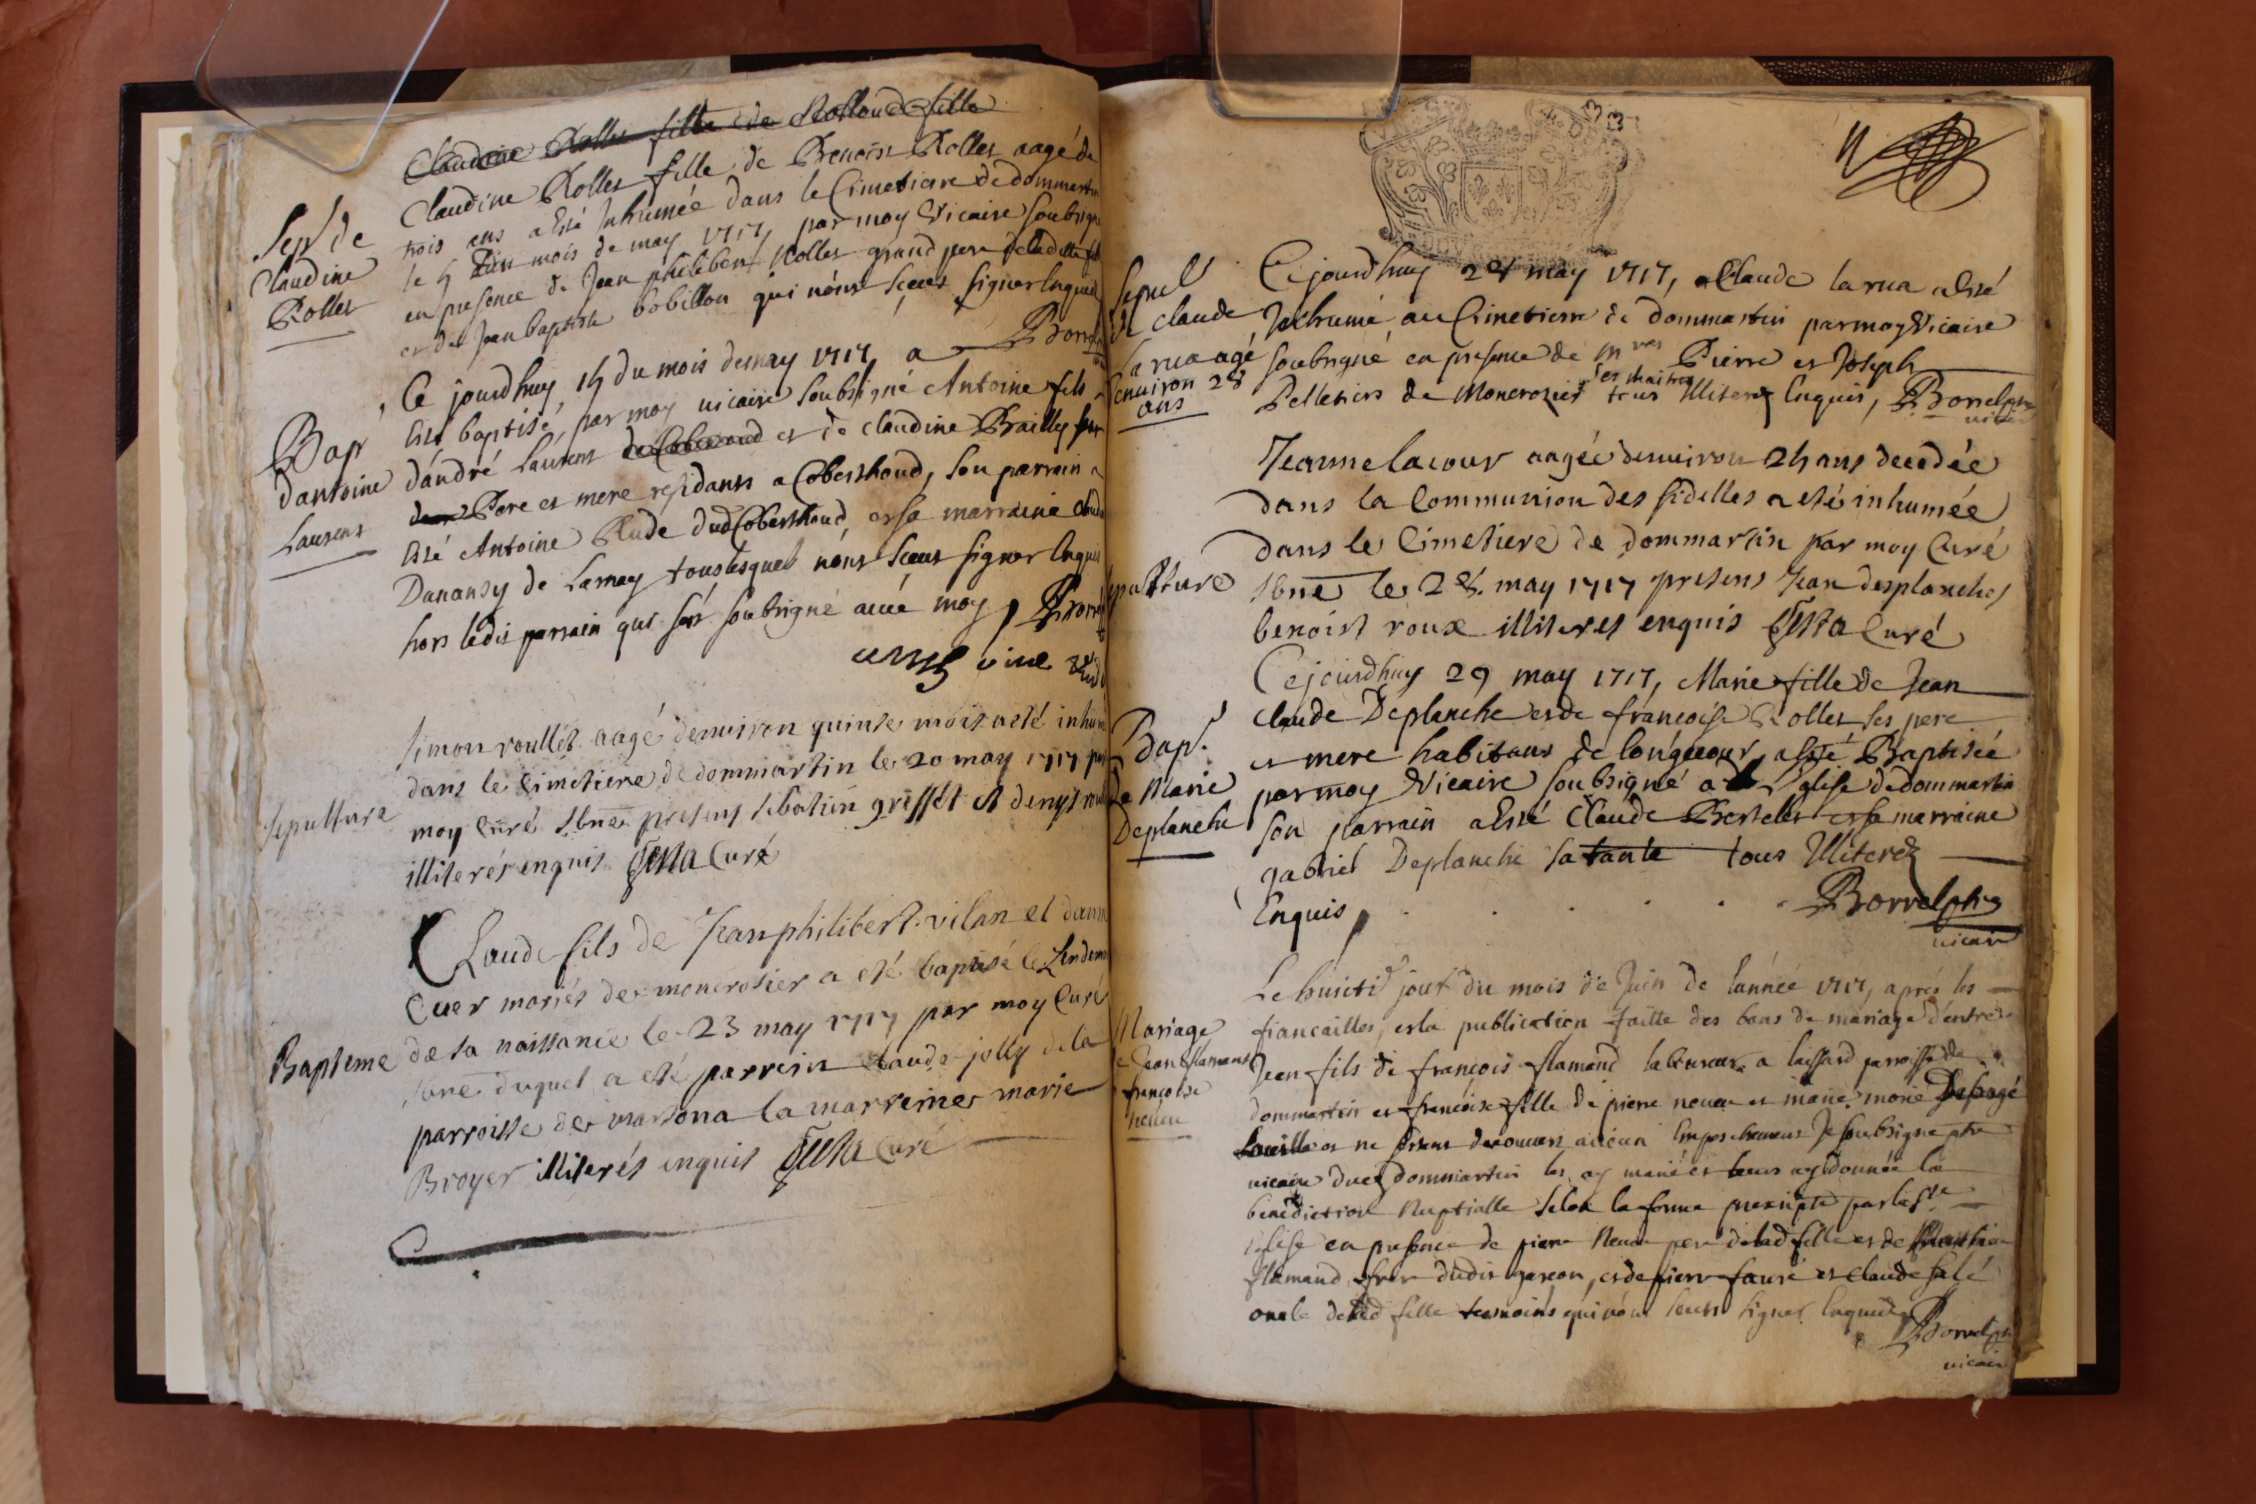 Claudine Rollet fille de Rolland fille
Sep.r de Claudine Rollet
Claudine Rollet fille de Benoist Rollet aagé de
trois ans a Esté Inhumée dans le Cimetiere de dommartin
le 5 mois de may 1717, par moy Vicaire soubsigné
en presence de Jean philibert Rollet grand pere de ladite
et de Jean baptiste bobillon qui n'ont sceus signer Enquis
Borrel
Bap d'antoine Laurent
Ce jourdhuy 15 du mois de may 1717, a
Esté baptisé, par moy vicaire soubsigné Antoine fils
d'andré Laurent et de claudine Bailly
Pere et mere residants a Cobesthoud, son parrain a
Esté Antoine Rude dud Cobesthoud et sa marraine
Danansy de Lamay tous lesquels n'ont sceus signer Enquis
hors ledit parrain qui s'est soubsigné avec moy, Borrel
sepulture
simon roullét aagé denuiron quinse mois a eté inhumé
dans le cimetiere de dommartin le 20 may 1717 par
moy Curé sbné presens sebastien grissét et denys
illiterés enquis Testa Curé
Bapteme
Claude fils de Jean philibert vilan et
Cuer mariés de moncrosier a eté baptisé le Lendemain
de sa naissance le 23 may 1717 par moy Curé
sbné duquel a eté parrein claude jolly de la
parroisse de marsona la marreine marie
Broyer illiterés enquis Testa Curé
33
Sepul.r de claude Larua agé Environ 28 ans
Cejourdhuy 28 may 1717, Claude larua a Esté
Inhumé au Cimetiere de dommartin par moy Vicaire
soubsigné en presence de Pierre et Joseph
Pelletiers de Moncrozier ses maitres tous Illiterez Enquis, Borrel ptre
vicaire
sepulture
Jeanne lacour aagée denuiron 25 ans decedée
dans la Communion des fidelles a eté inhumée
dans le Cimetiere de dommartin par moy Curé
sbné le 28 may 1717 presens Jean desplanches
benoist roux illiteres enquis Testa Curé
Bap.r de Marie Deplanche
Cejourdhuy 29 may 1717, Marie fille de Jean
claude Deplanche et de françoise Rollet ses pere
et mere habitans de longecour, a Esté Baptisée
par moy Vicaire soubsigné a L'Eglise de dommartin
son parrain a Esté Claude Berthelet et sa marraine
gabriel Deplanche sa tante tous Illiterez
Enquis, Borrel ptre
vicaire
Mariage Jean flamand françoise neveu
Le huiti.e jour du mois de Juin de l'année 1717, aprés les
fiancailles, et la publication faitte des bans de mariage d'entre
Jean fils de françois flamand laboureur a laissard paroisse de
dommartin et françoise fille de pierre neveu et marie
et ne s'estant decouvert aucun Empeschement Je soubsigné ptre
vicaire dud dommartin les ay mariés et leurs ay donnée la
bénédiction Nuptialle selon la forme prescripte par la s.te
Eglise en presence de pierre Neveu pere de lad fille et de
flamand frere dudit garcon, et de pierre fauré et claude
oncle de lad fille tesmoins qui n'ont sceus signer Enquis
Borrel ptre
vicaire